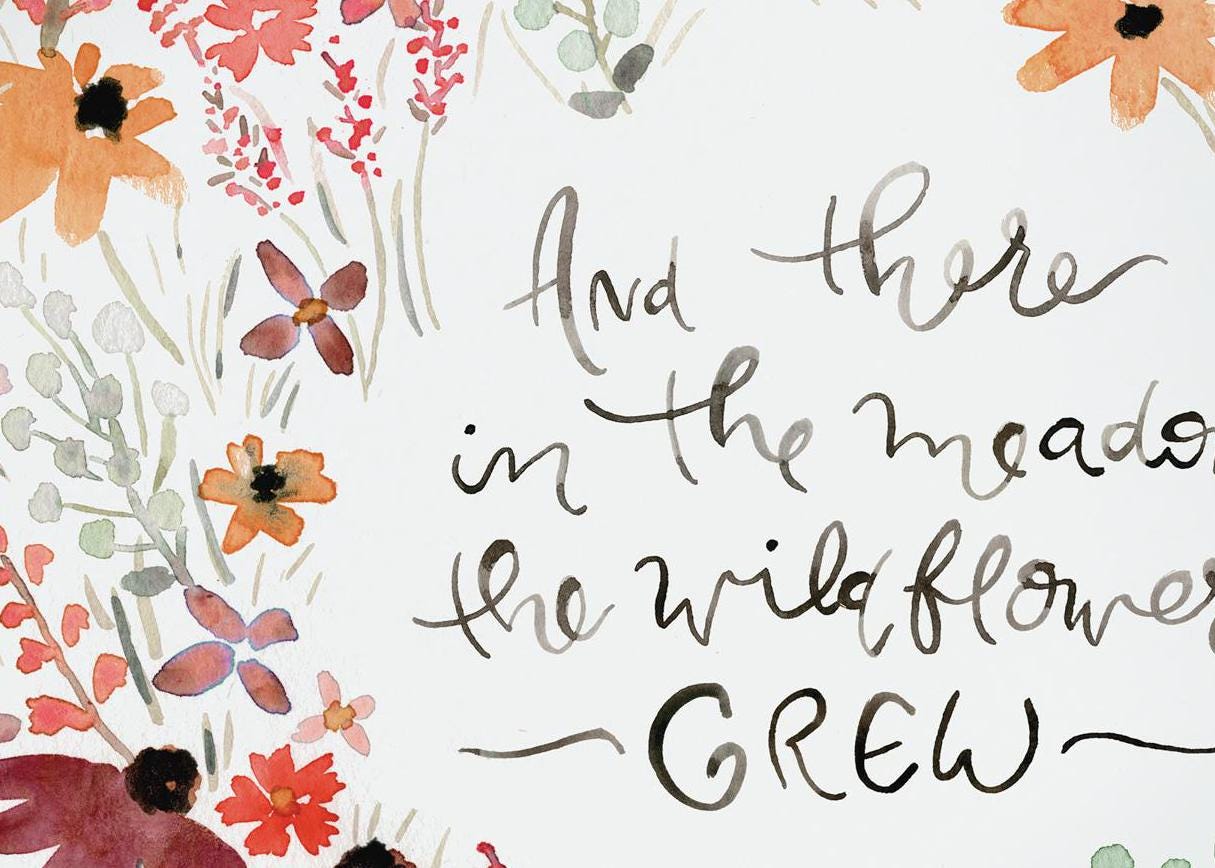 And there
in the meado
the wildflower
GREW